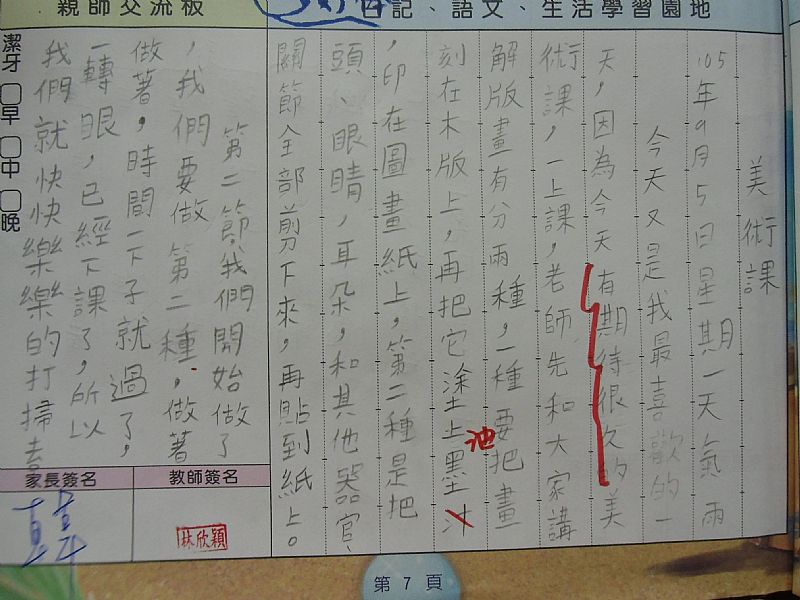 日記、語文、生活學習園地
美術課
105年9月5日星期一天氣雨
今天又是我最喜歡的一
天,因為今天有期待很久的美
術課,一上課,老師先和大家講
解版畫有分兩種,一種要把畫
刻在木版上,再把它塗上墨汁
油
,印在圖畫紙上,第二種是把
頭、眼睛,耳朵,和其他器官、
關節全部剪下來,再貼到紙上。
親師交流板
第二節,我們開始做了
,我們要做第二種,做著
做著,時間一下子就過了,
一轉眼,已經下課了,所以
我們就快快樂樂的打掃去
潔牙□早□中□晚
教師簽名
林欣穎
家長簽名
第7頁